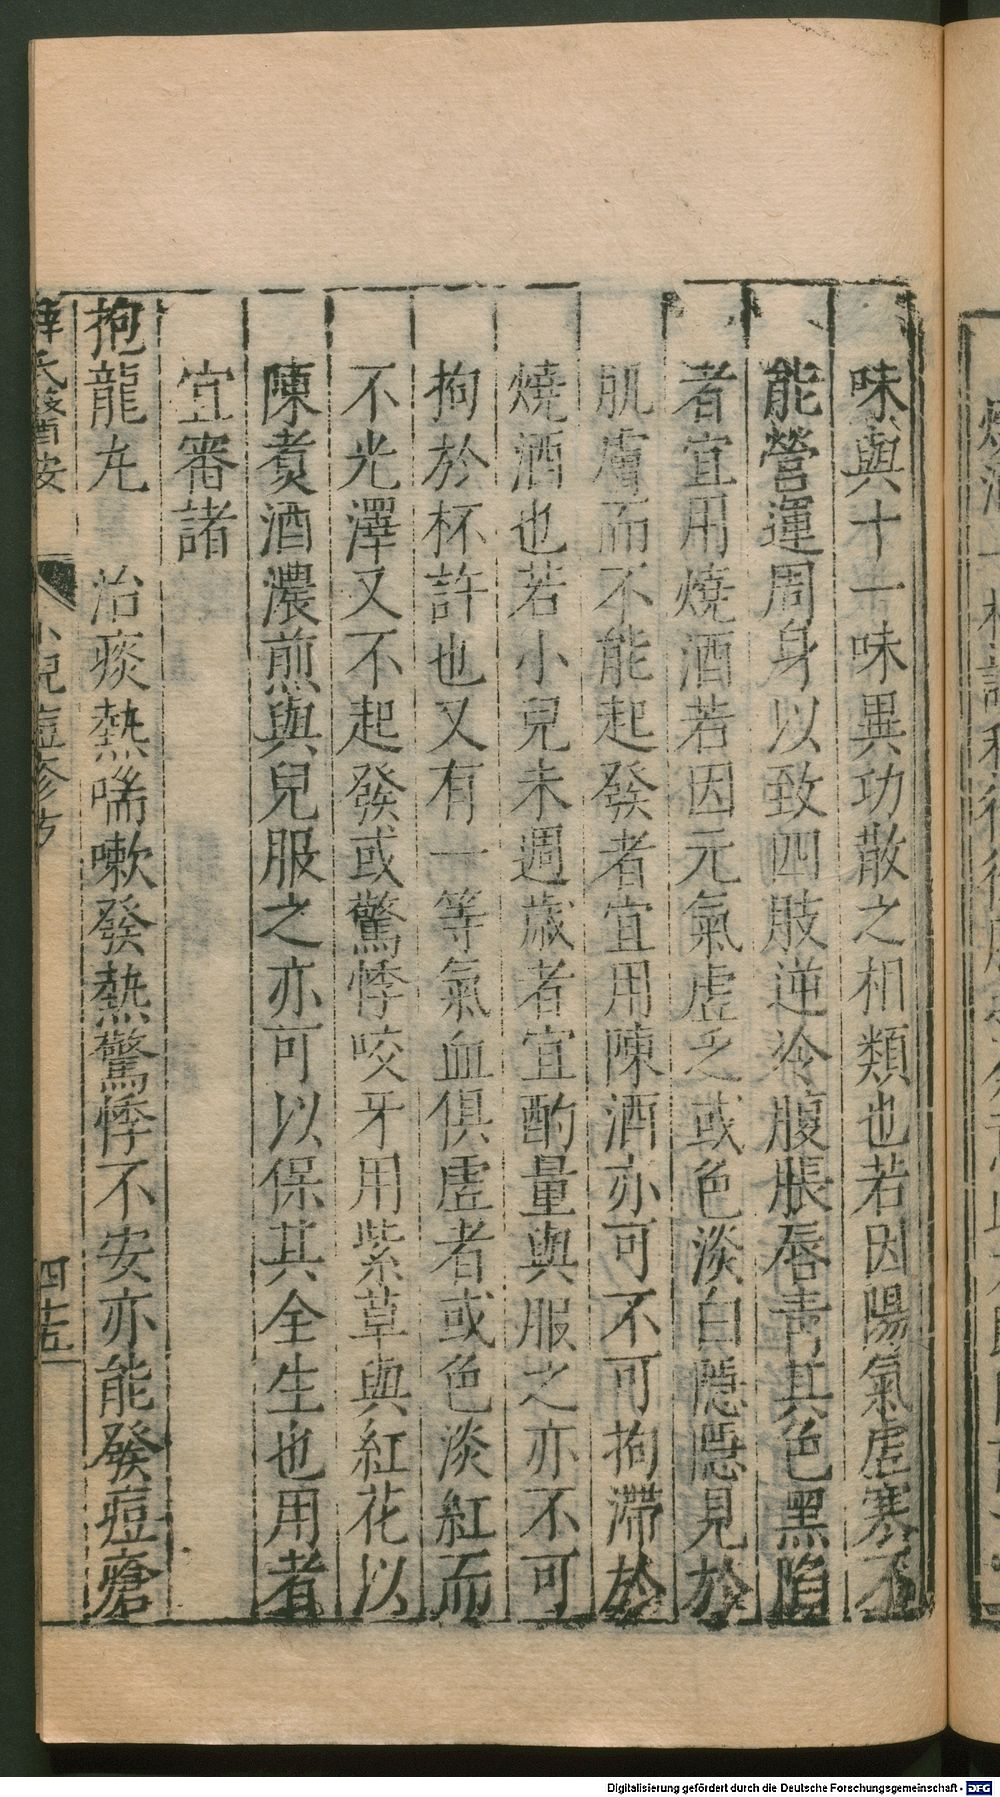 味與十一味異功散之相類也若因陽氣虛寒不
能營運周身以致四肢逆冷腹脹唇青其色黑陷
者宜用燒酒若因元氣虛乏或色淡白隱隱見於
肌膚而不能起發者宜用陳酒亦可不可拘滯於
燒酒也若小兒未週歲者宜酌量與服之亦不可
拘於杯許也又有一等氣血俱虛者或色淡紅而
不光澤又不起發或驚悸咬牙用紫草與紅花以
陳煑酒濃煎與兒服之亦可以保其全生也用者
宜審諸
抱龍丸 治痰熱喘嗽發熱驚悸不安亦能發痘瘡
薛氏醫按 小兒痘疹方 四十五
Digitalisierung gefördert durch die Deutsche Forschungsgemeinschaft - DFG